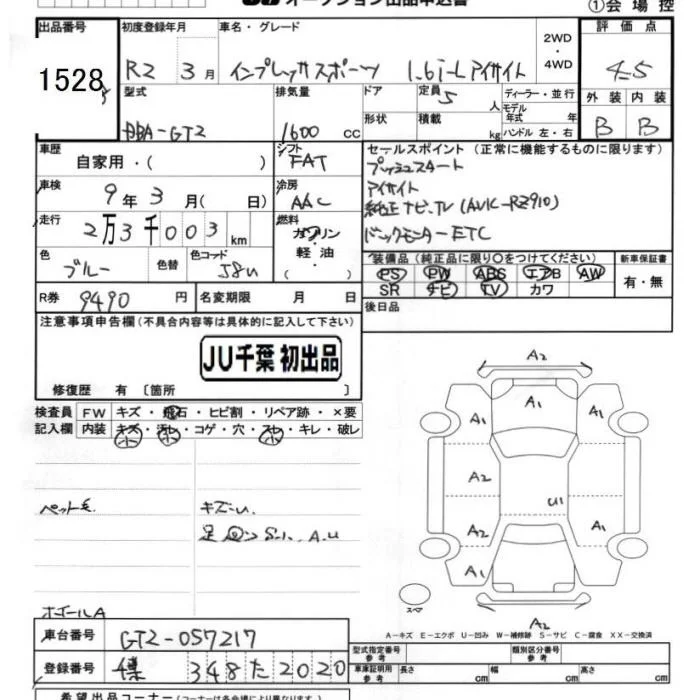 オークション出品申込書
①会場控
出品番号 初度登録年月 車名・グレード 2WD・4WD 評価点
1528
R2 3月 インプレッサスポーツ 1.6i-L アイサイト 4.5
型式 排気量 ドア 定員 5人 ディーラー・並行 外装 内装
DBA-GT2 1600cc 形状 積載 kg モデル年式 年 ハンドル 左・右 B B
車歴 自家用・( ) シフト FAT セールスポイント(正常に機能するものに限ります)
プッシュスタート
車検 9年3月( 日) 冷房 AAC アイサイト
純正ナビ、TV (AVIC-RZ910)
走行 2万3千003km 燃料 ガソリン・軽油・( ) バックモニター ETC
色 ブルー 色替 色コード 装備品(純正品に限り○をつけてください) 新車保証書
PS PW ABS エアB AW 有・無
SR ナビ TV カワ
R券 9490円 名変期限 月 日 後日品
注意事項申告欄(不具合内容等は具体的に記入して下さい)
JU千葉 初出品
修復歴 有〔箇所 〕
検査員記入欄 FW キズ・飛石・ヒビ割・リペア跡・×要
内装 キズ・汚レ・コゲ・穴・スレ・キレ・破レ
小 小 小
ペット毛 キズ
A.U
A2
A1 A1 A1
A2 U1
A2 A1
A1
スペア
A2
A-キズ E-エクボ U-凹み W-補修跡 S-サビ C-腐食 XX-交換済
車台番号 GT2-057217
登録番号 348 た 2020
型式指定番号 参考 類別区分番号 参考
車庫証明用 参考 長さ cm 幅 cm 高さ cm
希望出品コーナー(コーナーは各会場により異なります)